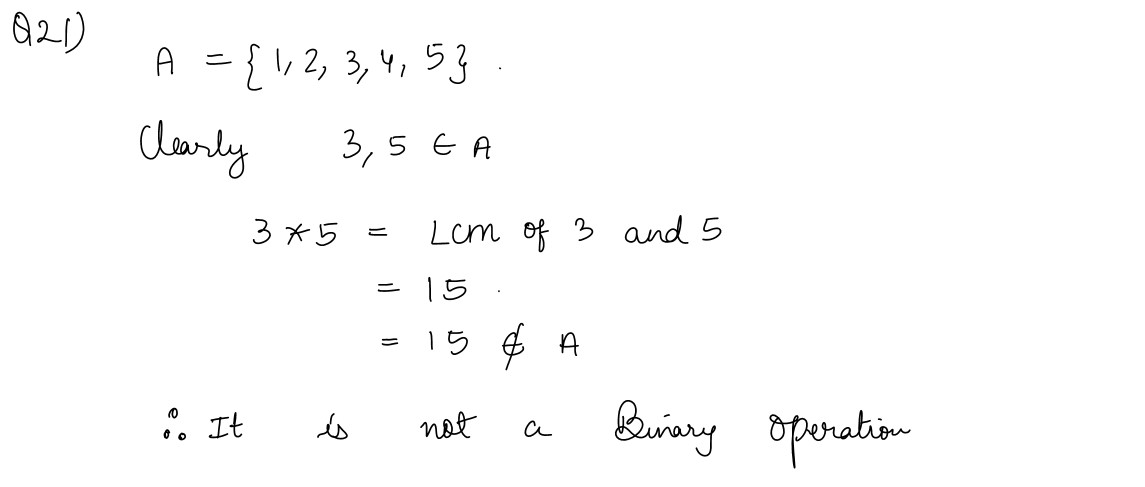 Q21)
A = {1, 2, 3, 4, 5} .
Clearly 3, 5 ∈ A
3 * 5 = LCM of 3 and 5
= 15 .
= 15 ∉ A
∴ It is not a Binary operation